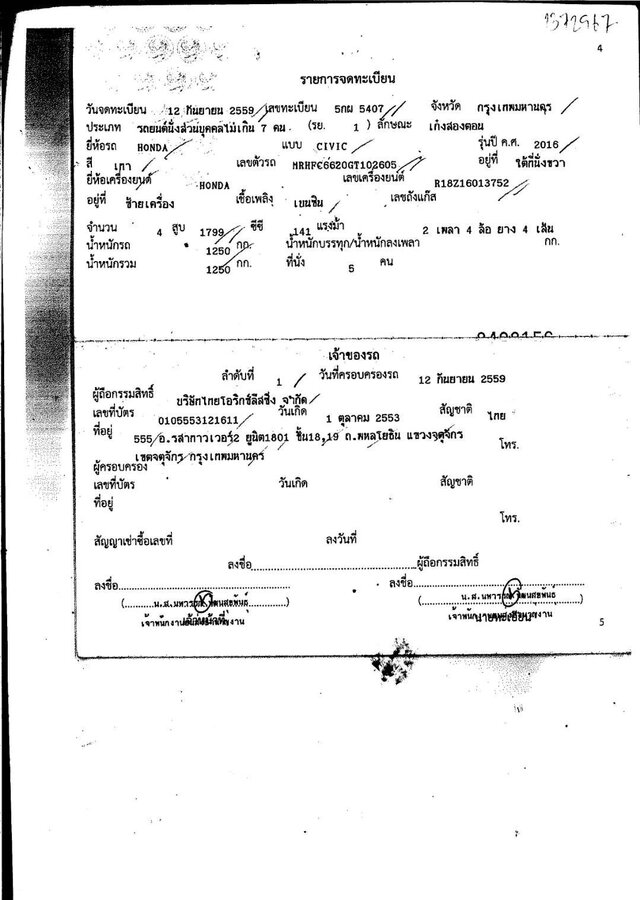 1372967
4
รายการจดทะเบียน
วันจดทะเบียน 12 กันยายน 2559 เลขทะเบียน 5กผ 5407 จังหวัด กรุงเทพมหานคร
ประเภท รถยนต์นั่งส่วนบุคคลไม่เกิน 7 คน (รย. 1 ) ลักษณะ เก๋งสองตอน
ยี่ห้อรถ HONDA แบบ CIVIC รุ่นปี ค.ศ. 2016
สี เทา เลขตัวรถ MRHFC6620GT102605 อยู่ที่ ใต้ที่นั่งขวา
ยี่ห้อเครื่องยนต์ HONDA เลขเครื่องยนต์ R18Z16013752
อยู่ที่ ซ้ายเครื่อง เชื้อเพลิง เบนซิน เลขถังแก๊ส
จำนวน 4 สูบ 1799 ซีซี 141 แรงม้า 2 เพลา 4 ล้อ ยาง 4 เส้น
น้ำหนักรถ 1250 กก. น้ำหนักบรรทุก/น้ำหนักลงเพลา กก.
น้ำหนักรวม 1250 กก. ที่นั่ง 5 คน
เจ้าของรถ
ลำดับที่ 1 วันที่ครอบครองรถ 12 กันยายน 2559
ผู้ถือกรรมสิทธิ์ บริษัทไทยโอริกซ์ลีสซิ่ง จำกัด
เลขที่บัตร 0105553121611 วันเกิด 1 ตุลาคม 2553 สัญชาติ ไทย
ที่อยู่ 555 อ.รสาทาวเวอร์2 ยูนิต1801 ชั้น18,19 ถ.พหลโยธิน แขวงจตุจักร
เขตจตุจักร กรุงเทพมหานคร โทร.
ผู้ครอบครอง
เลขที่บัตร วันเกิด สัญชาติ
ที่อยู่
โทร.
สัญญาเช่าซื้อเลขที่ ลงวันที่
ลงชื่อ ผู้ถือกรรมสิทธิ์
ลงชื่อ ลงชื่อ
นายทะเบียน
5